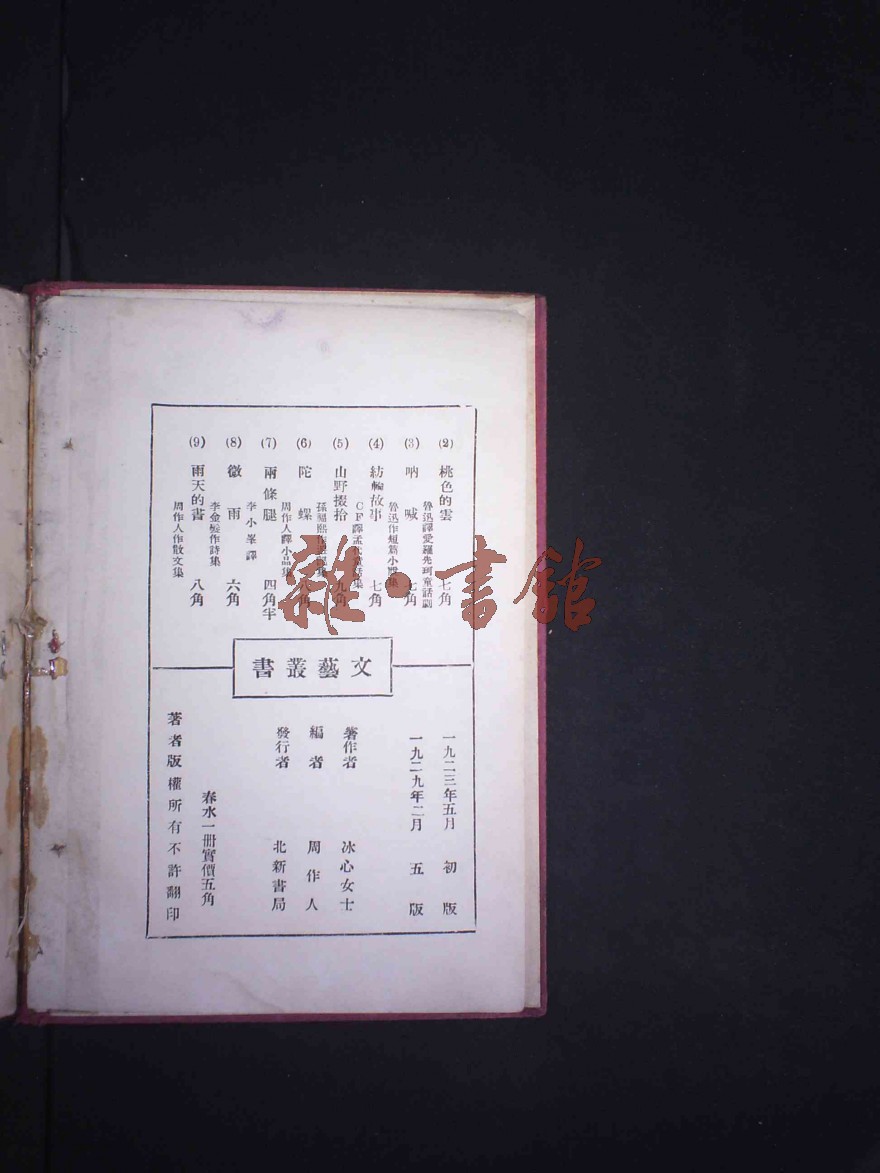 (2) 桃色的雲
魯迅譯愛羅先珂童話劇
七角
(3) 吶喊
魯迅作短篇小說集
七角
(4) 紡輪故事
CF譯孟代童話集
七角
(5) 山野掇拾
孫福熙作遊記集
九角
(6) 陀螺
周作人譯小品集
八角
(7) 兩條腿
李小峯譯
四角半
(8) 微雨
李金髮作詩集
六角
(9) 雨天的書
周作人作散文集
八角
文藝叢書
一九二三年五月 初版
一九二九年二月 五版
著作者 冰心女士
編者 周作人
發行者 北新書局
春水一冊實價五角
著者版權所有不許翻印
雜·書館